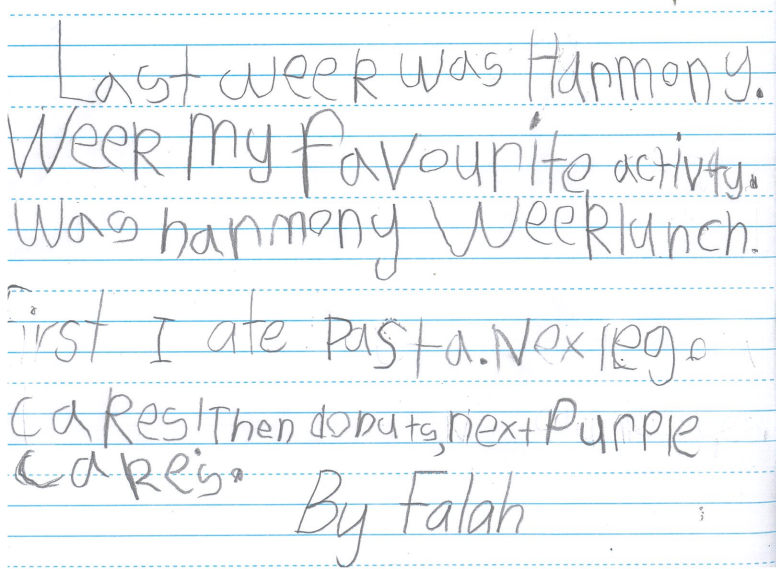 Last week was Harmony.
Week My favourite activty.
Was harmony Week lunch.
First I ate Pasta. Nex lego
cakes! Then donuts, next Purple
cakes.
By Falah